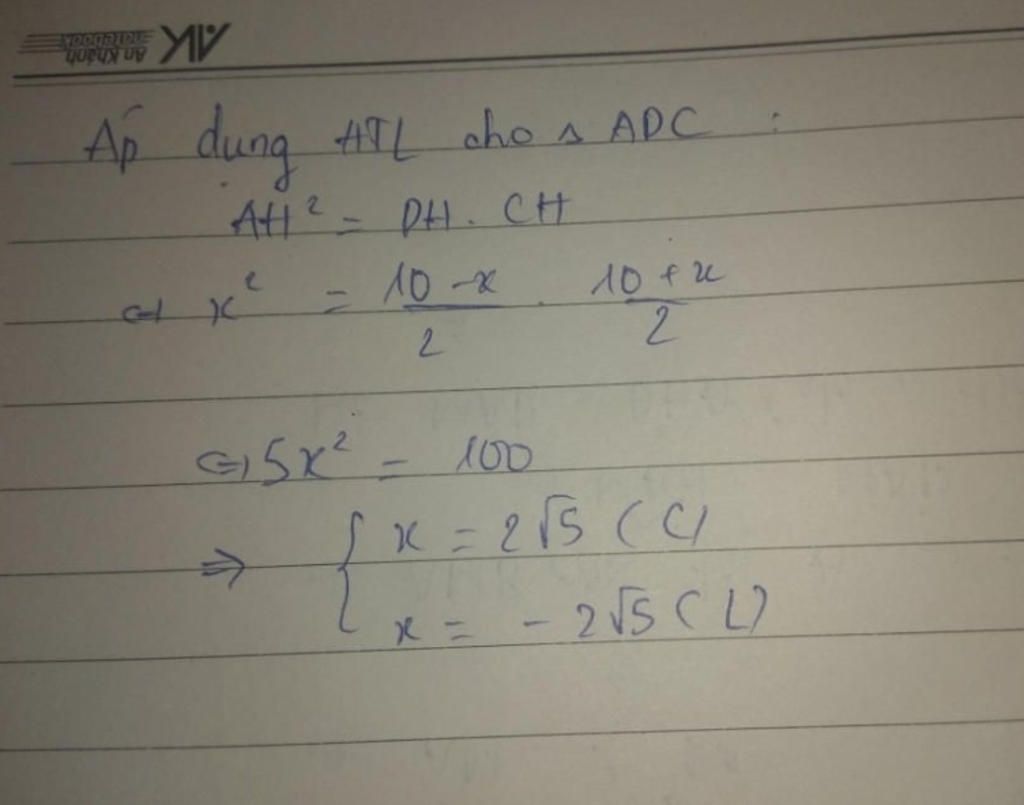 AK An Khánh notebook
Áp dụng HTL cho Δ ADC :
AH² = DH . CH
⇔ x² = (10 - x)/2 . (10 + x)/2
⇔ 5x² = 100
⇒ { x = 2√5 (C)
x = - 2√5 (L)